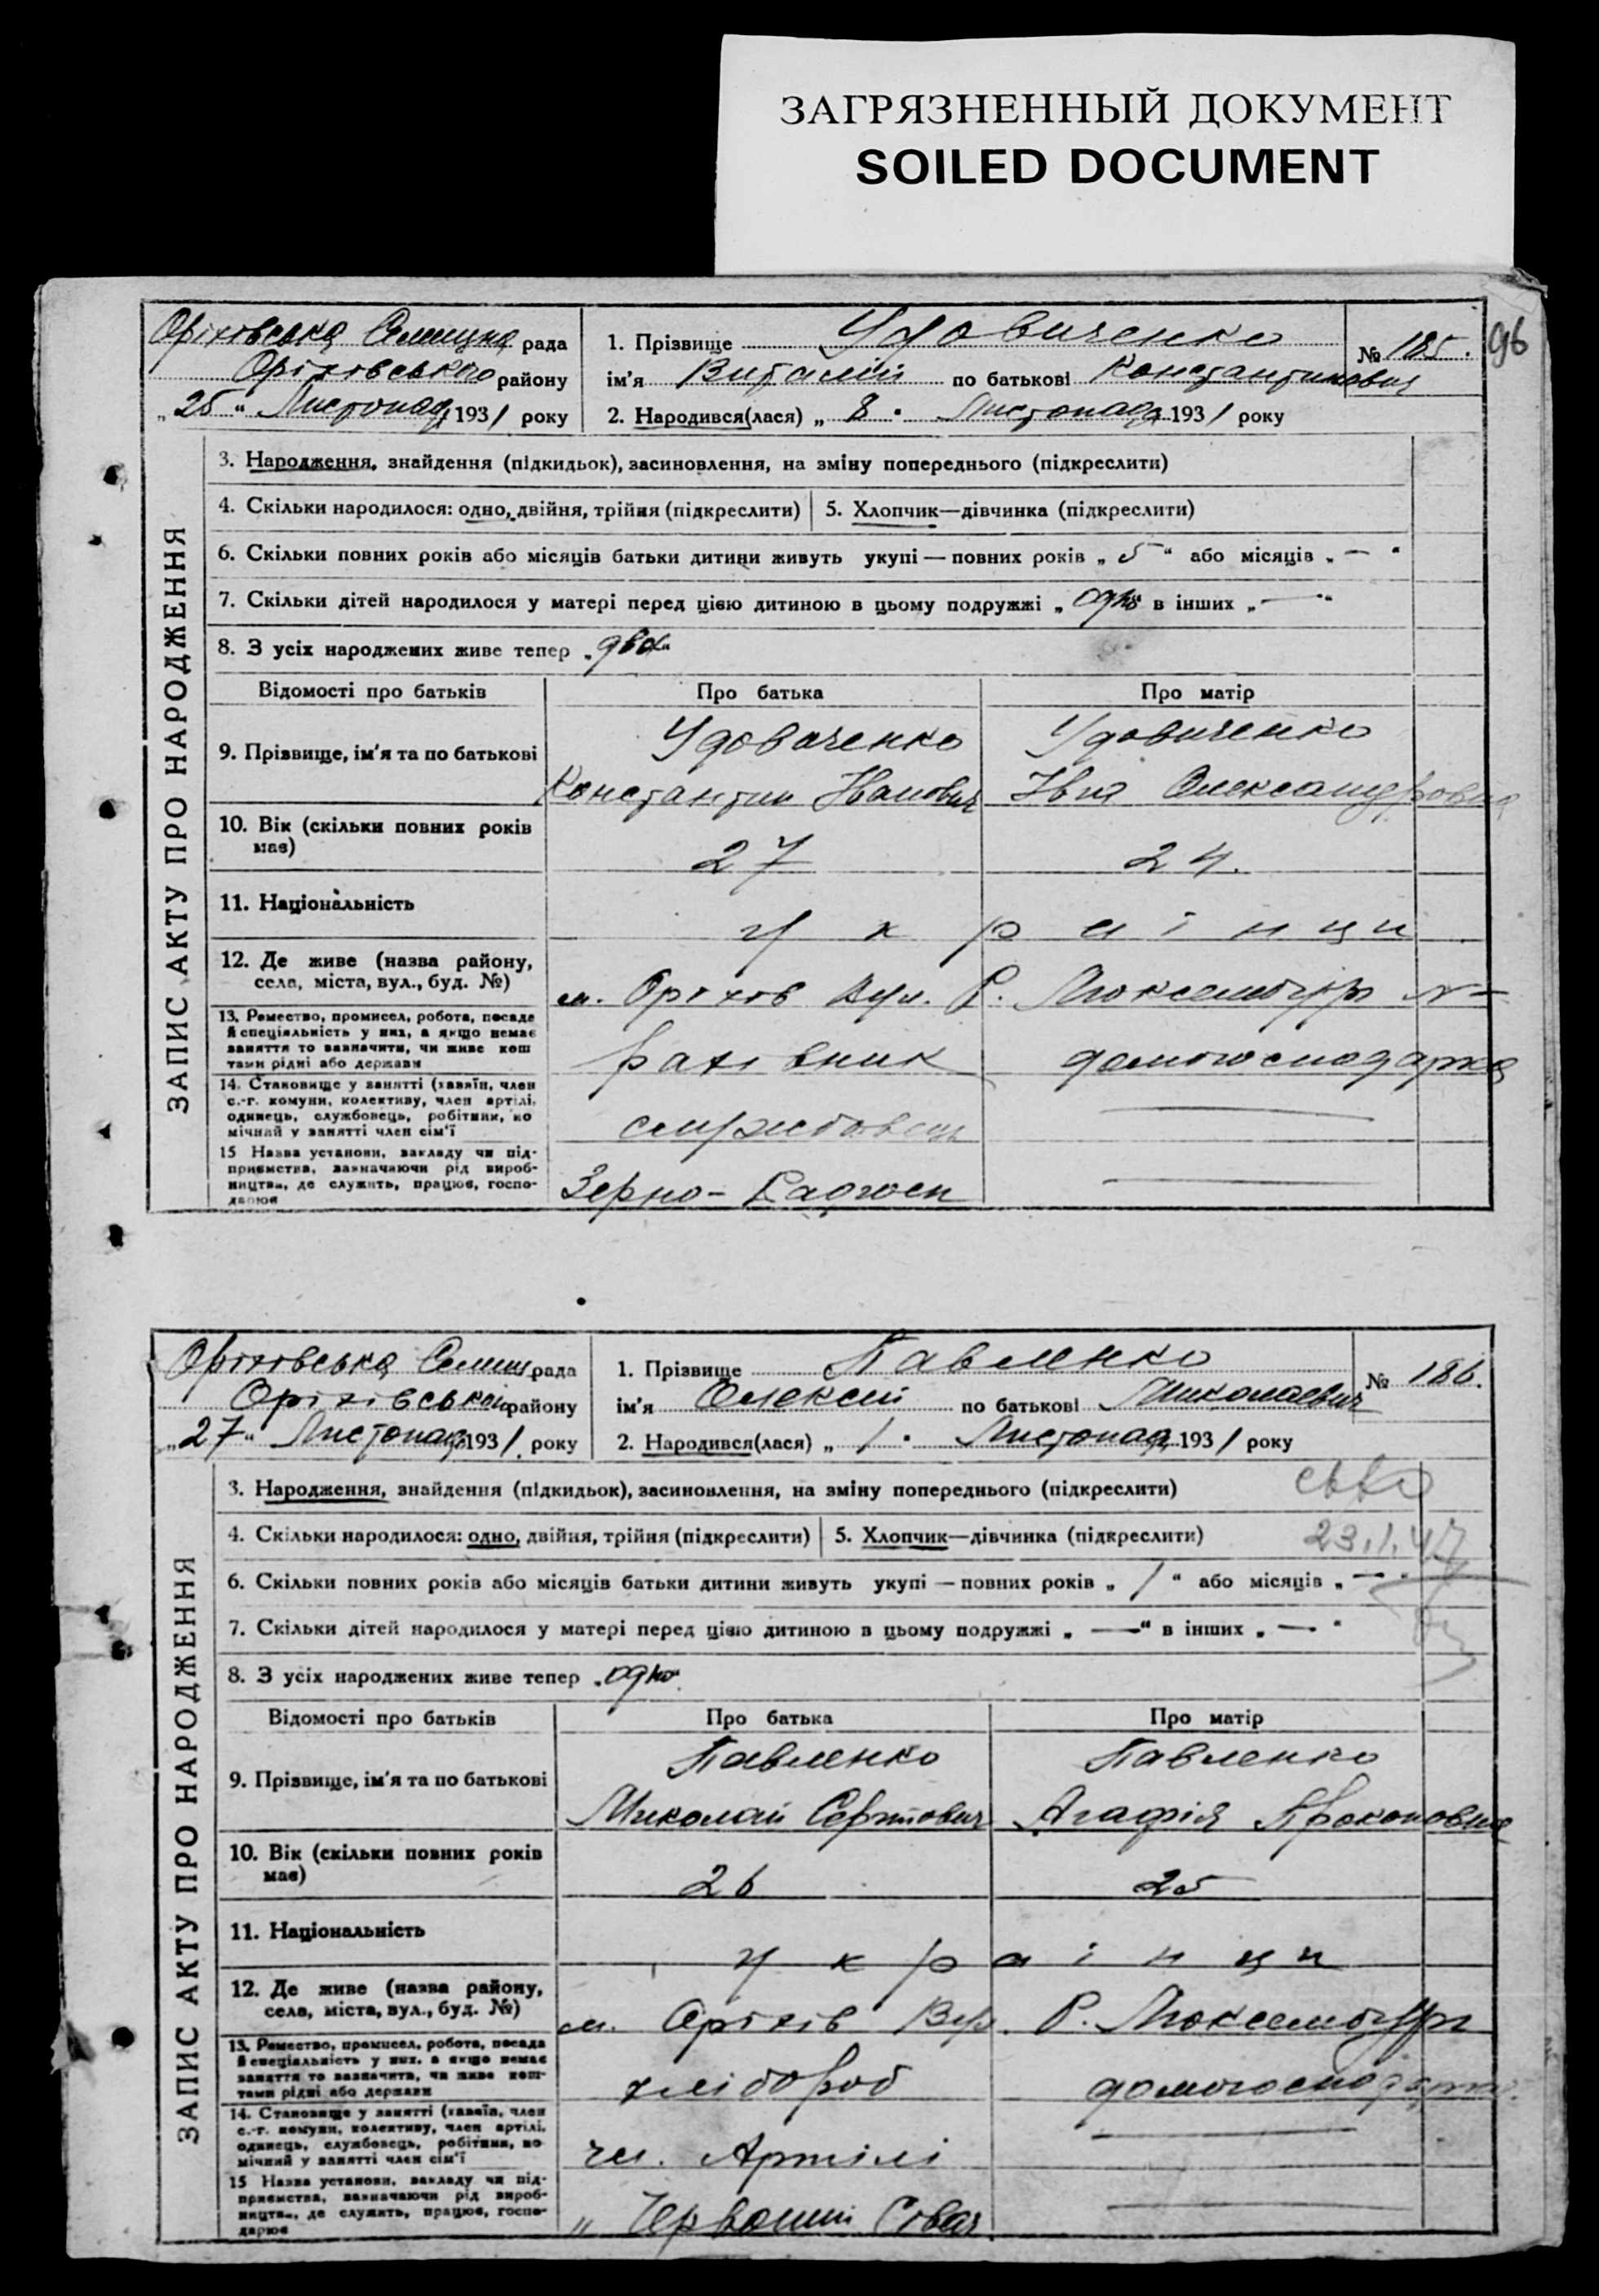 ЗАГРЯЗНЕННЫЙ ДОКУМЕНТ
SOILED DOCUMENT
96
ЗАПИС АКТУ ПРО НАРОДЖЕННЯ
Оріхівська Селищна рада
Оріхівського району
„25“ Листопада 1931 року
1. Прізвище Удовиченко
№ 185.
ім'я Виталій по батькові Константинович
2. Народився(лася) „8“ Листопада 1931 року
3. Народження, знайдення (підкидьок), засиновлення, на зміну попереднього (підкреслити)
4. Скільки народилося: одно, двійня, трійня (підкреслити) 5. Хлопчик—дівчинка (підкреслити)
6. Скільки повних років або місяців батьки дитини живуть укупі — повних років „5“ або місяців „—“
7. Скільки дітей народилося у матері перед цією дитиною в цьому подружжі „одно“ в інших „—“
8. З усіх народжених живе тепер „два“
Відомості про батьків Про батька Про матір
9. Прізвище, ім'я та по батькові
Удовиченко Удовиченко
Константин Іванович Олександровна
10. Вік (скільки повних років має)
27 24.
11. Національність
українци
12. Де живе (назва району, села, міста, вул., буд. №)
м. Оріхів Вул. Р. Люксембург №—
13. Ремество, промисел, робота, посада
й спеціяльність у них, а якщо немає
заняття то зазначити, чи живе кош
тами рідні або держави
рахівник домогосподарка
14. Становище у занятті (хазяїн, член
с.-г. комуни, колективу, член артілі,
одинець, службовець, робітник, по
мічний у занятті член сім'ї
—
15 Назва установи, закладу чи під-
приємства, зазначаючи рід вироб-
ництва, де служить, працює, госпо-
дарює
Зерно- —
ЗАПИС АКТУ ПРО НАРОДЖЕННЯ
Оріхівська Селищ рада
Оріхівськой району
„27“ Листопада 1931 року
1. Прізвище Павленко
№ 186.
ім'я Олексій по батькові Миколаевич
2. Народився(лася) „1“ Листопада 1931 року
3. Народження, знайдення (підкидьок), засиновлення, на зміну попереднього (підкреслити)
4. Скільки народилося: одно, двійня, трійня (підкреслити) 5. Хлопчик—дівчинка (підкреслити)
23.1.47
6. Скільки повних років або місяців батьки дитини живуть укупі — повних років „1“ або місяців „—“
7. Скільки дітей народилося у матері перед цією дитиною в цьому подружжі „—“ в інших „—“
8. З усіх народжених живе тепер „одно“
Відомості про батьків Про батька Про матір
9. Прізвище, ім'я та по батькові
Павленко Павленко
Миколай Агафія Прокоповна
10. Вік (скільки повних років має)
26 25
11. Національність
українци
12. Де живе (назва району, села, міста, вул., буд. №)
м. Оріхів Вул. Р. Люксембург
13. Ремество, промисел, робота, посада
й спеціяльність у них, а якщо немає
заняття то зазначити, чи живе кош-
тами рідні або держави
хлібороб домогосподарка
14. Становище у занятті (хазяїн, член
с.-г. комуни, колективу, член артілі,
одинець, службовець, робітник, по
мічний у занятті член сім'ї
чл. Артілі —
15 Назва установи, закладу чи під-
приємства, зазначаючи рід вироб-
ництва, де служить, працює, госпо-
дарює
„ Червоний —